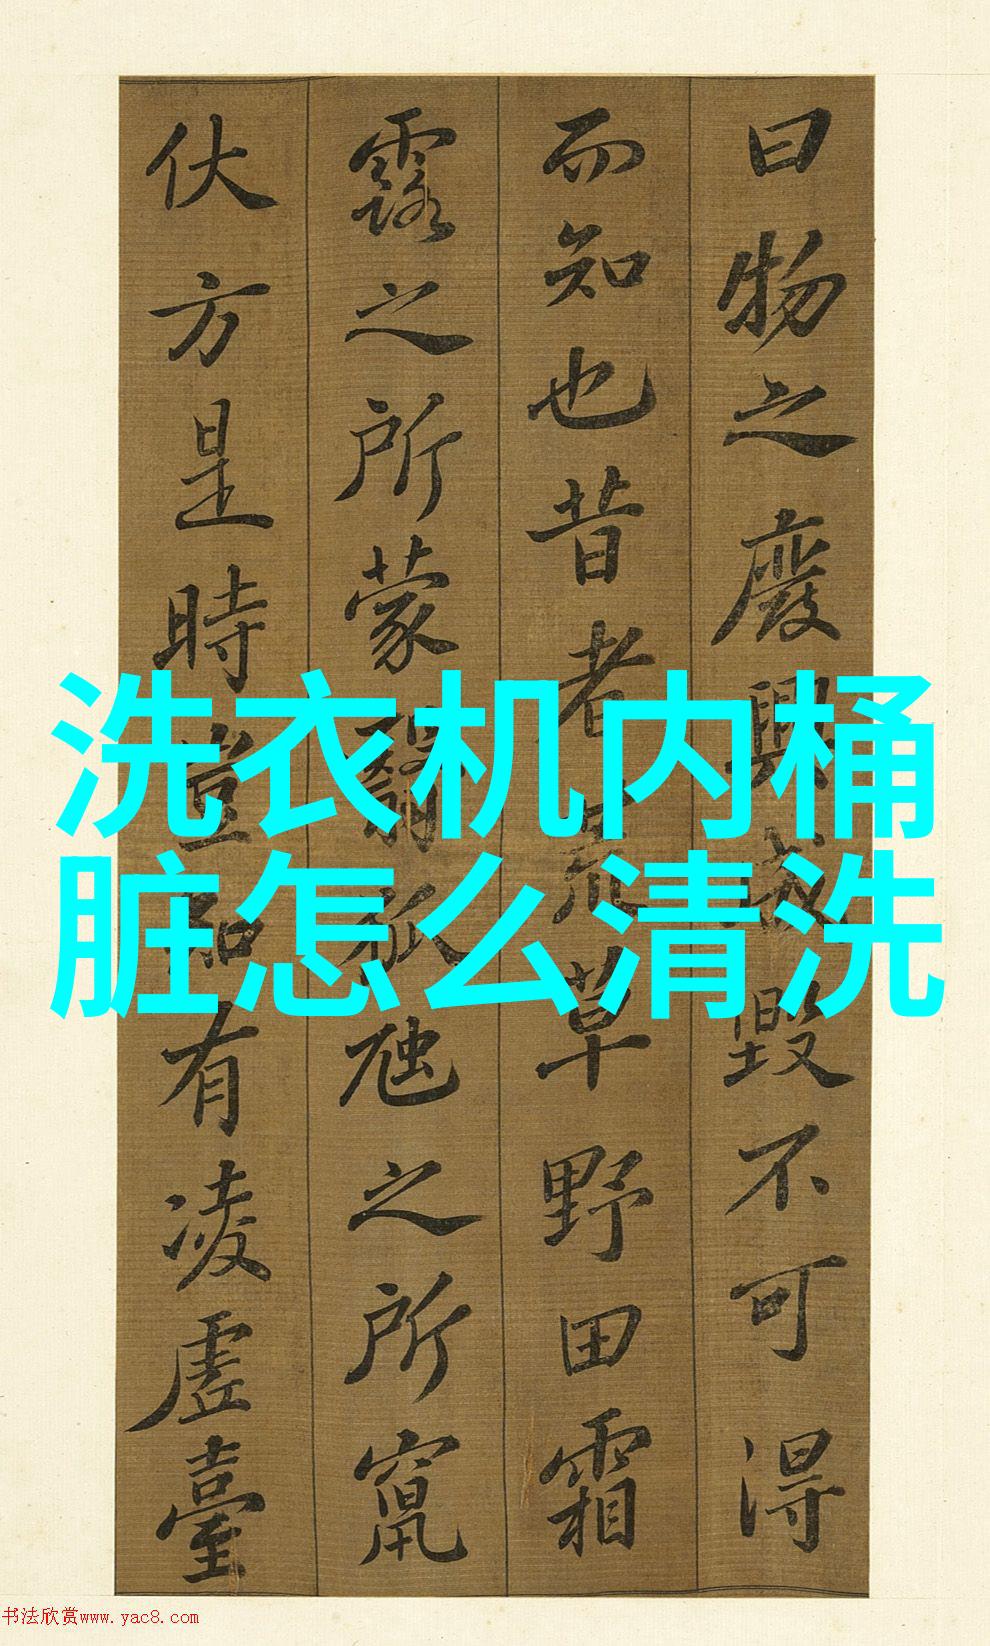 曰物之廢興成毀不可得
而知也昔者荒草野田霜
露之所蒙翳狐虺之所竄
伏方是時豈知有凌虛臺
洗衣机内桶
脏怎么清洗
书法欣赏www.yac8.com